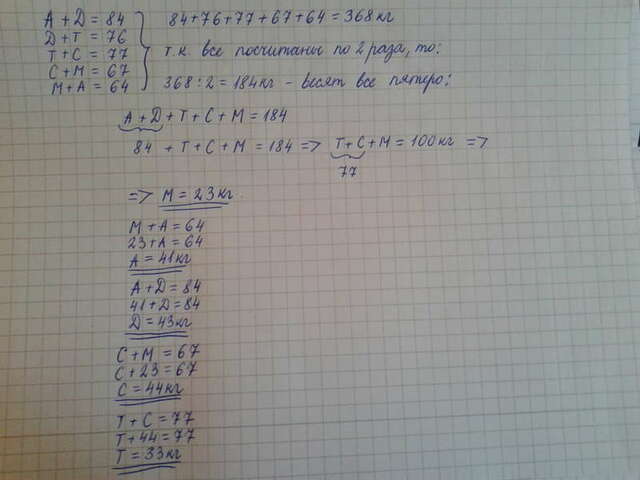 A + D = 84
D + T = 76
T + C = 77
C + M = 67
M + A = 64
84 + 76 + 77 + 67 + 64 = 368 кг
т.к. все посчитаны по 2 раза, то:
368 : 2 = 184 кг - весят все пятеро:
A + D + T + C + M = 184
84 + T + C + M = 184 => T + C + M = 100 кг =>
77
=> M = 23 кг.
M + A = 64
23 + A = 64
A = 41 кг
A + D = 84
41 + D = 84
D = 43 кг
C + M = 67
C + 23 = 67
C = 44 кг
T + C = 77
T + 44 = 77
T = 33 кг